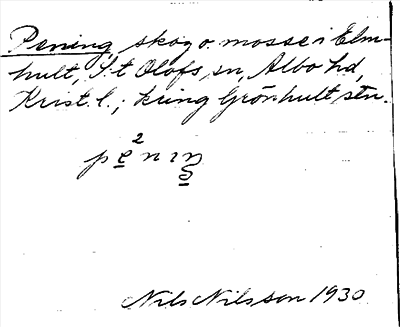 Pening, skog o. mosse i Elm-
hult, S:t Olofs sn, Albo hd,
Krist. l.; kring Grönhult, stn.
Nils Nilsson 1930